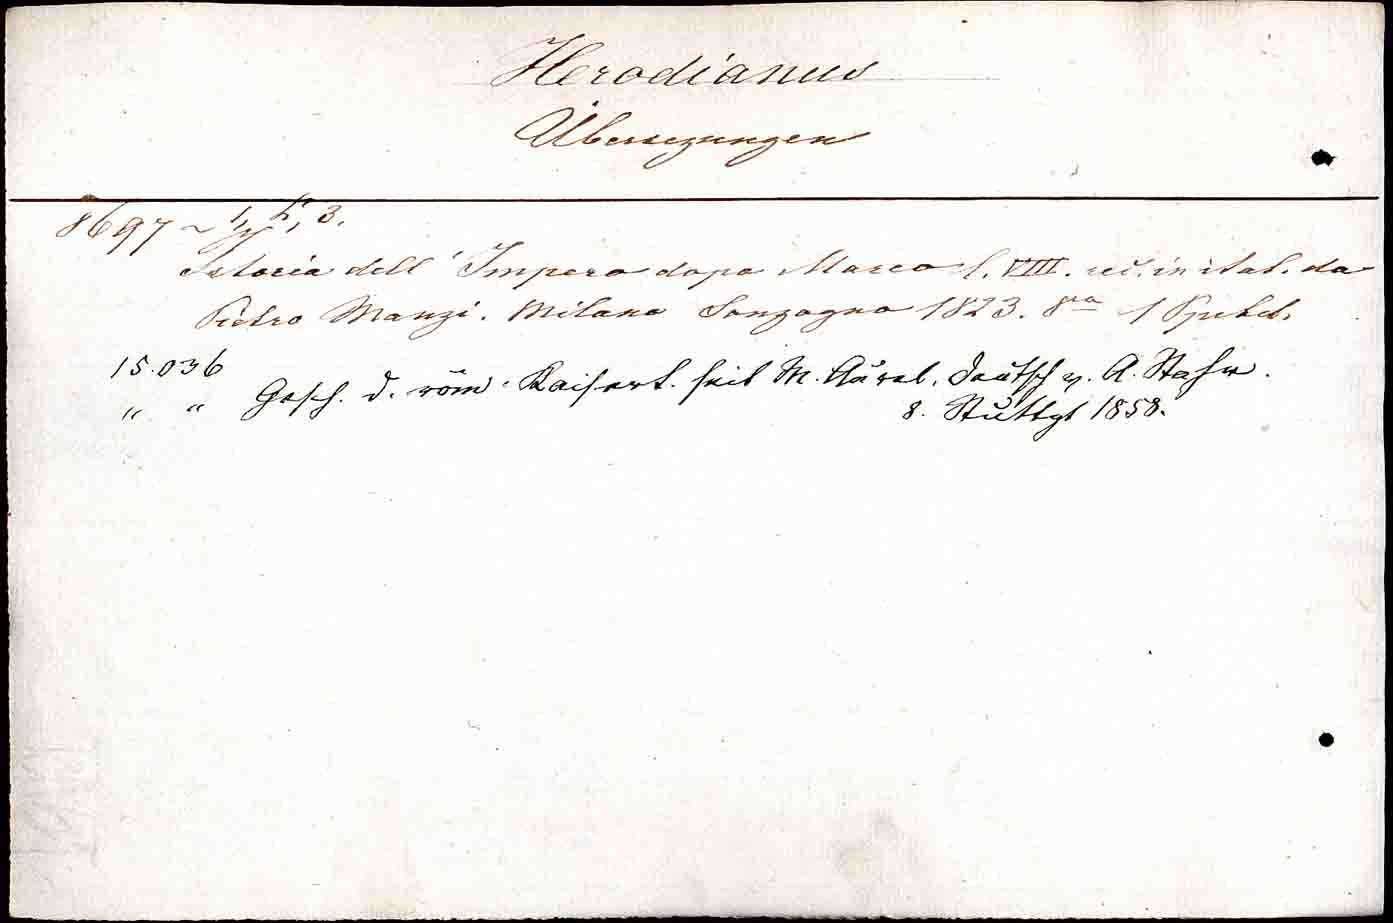 Herodianus
Übersezungen
8697
Istoria dell' Impero dopo Marco l. VIII. rid. in ital. da
Pietro Manzi. Milano Sonzogno 1823. 8va 1 Ppbd.
15.036
" " Gesch. d. röm. Kaisert. seit M. Aurel. Deutsch v. A. Stahr.
8. Stuttgt 1858.